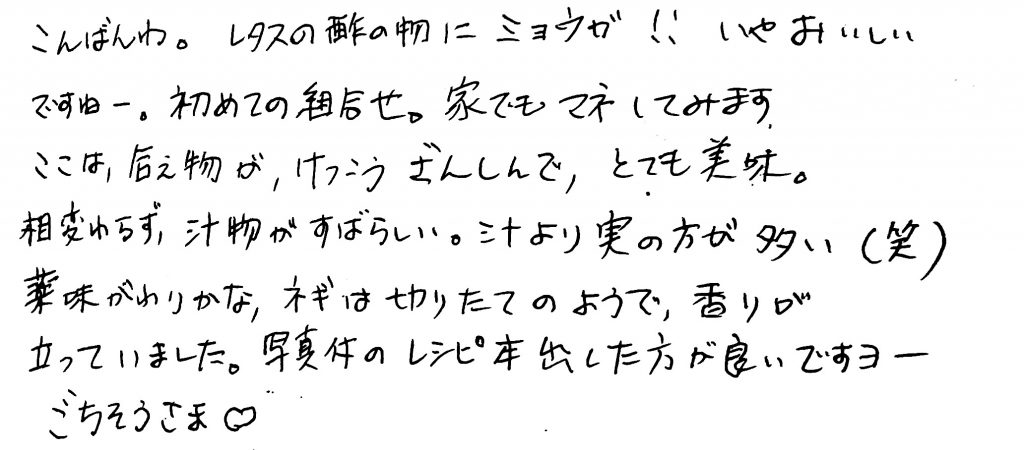 こんばんわ。レタスの酢の物にミョウガ!! いやおいしい
ですねー。初めての組合せ。家でもマネしてみます
ここは,合え物が,けっこうざんしんで,とても美味。
相変わらず,汁物がすばらしい。汁より実の方が多い(笑)
薬味がわりかな,ネギは切りたてのようで,香りが
立っていました。写真付のレシピ本出した方が良いですヨー
ごちそうさま♡